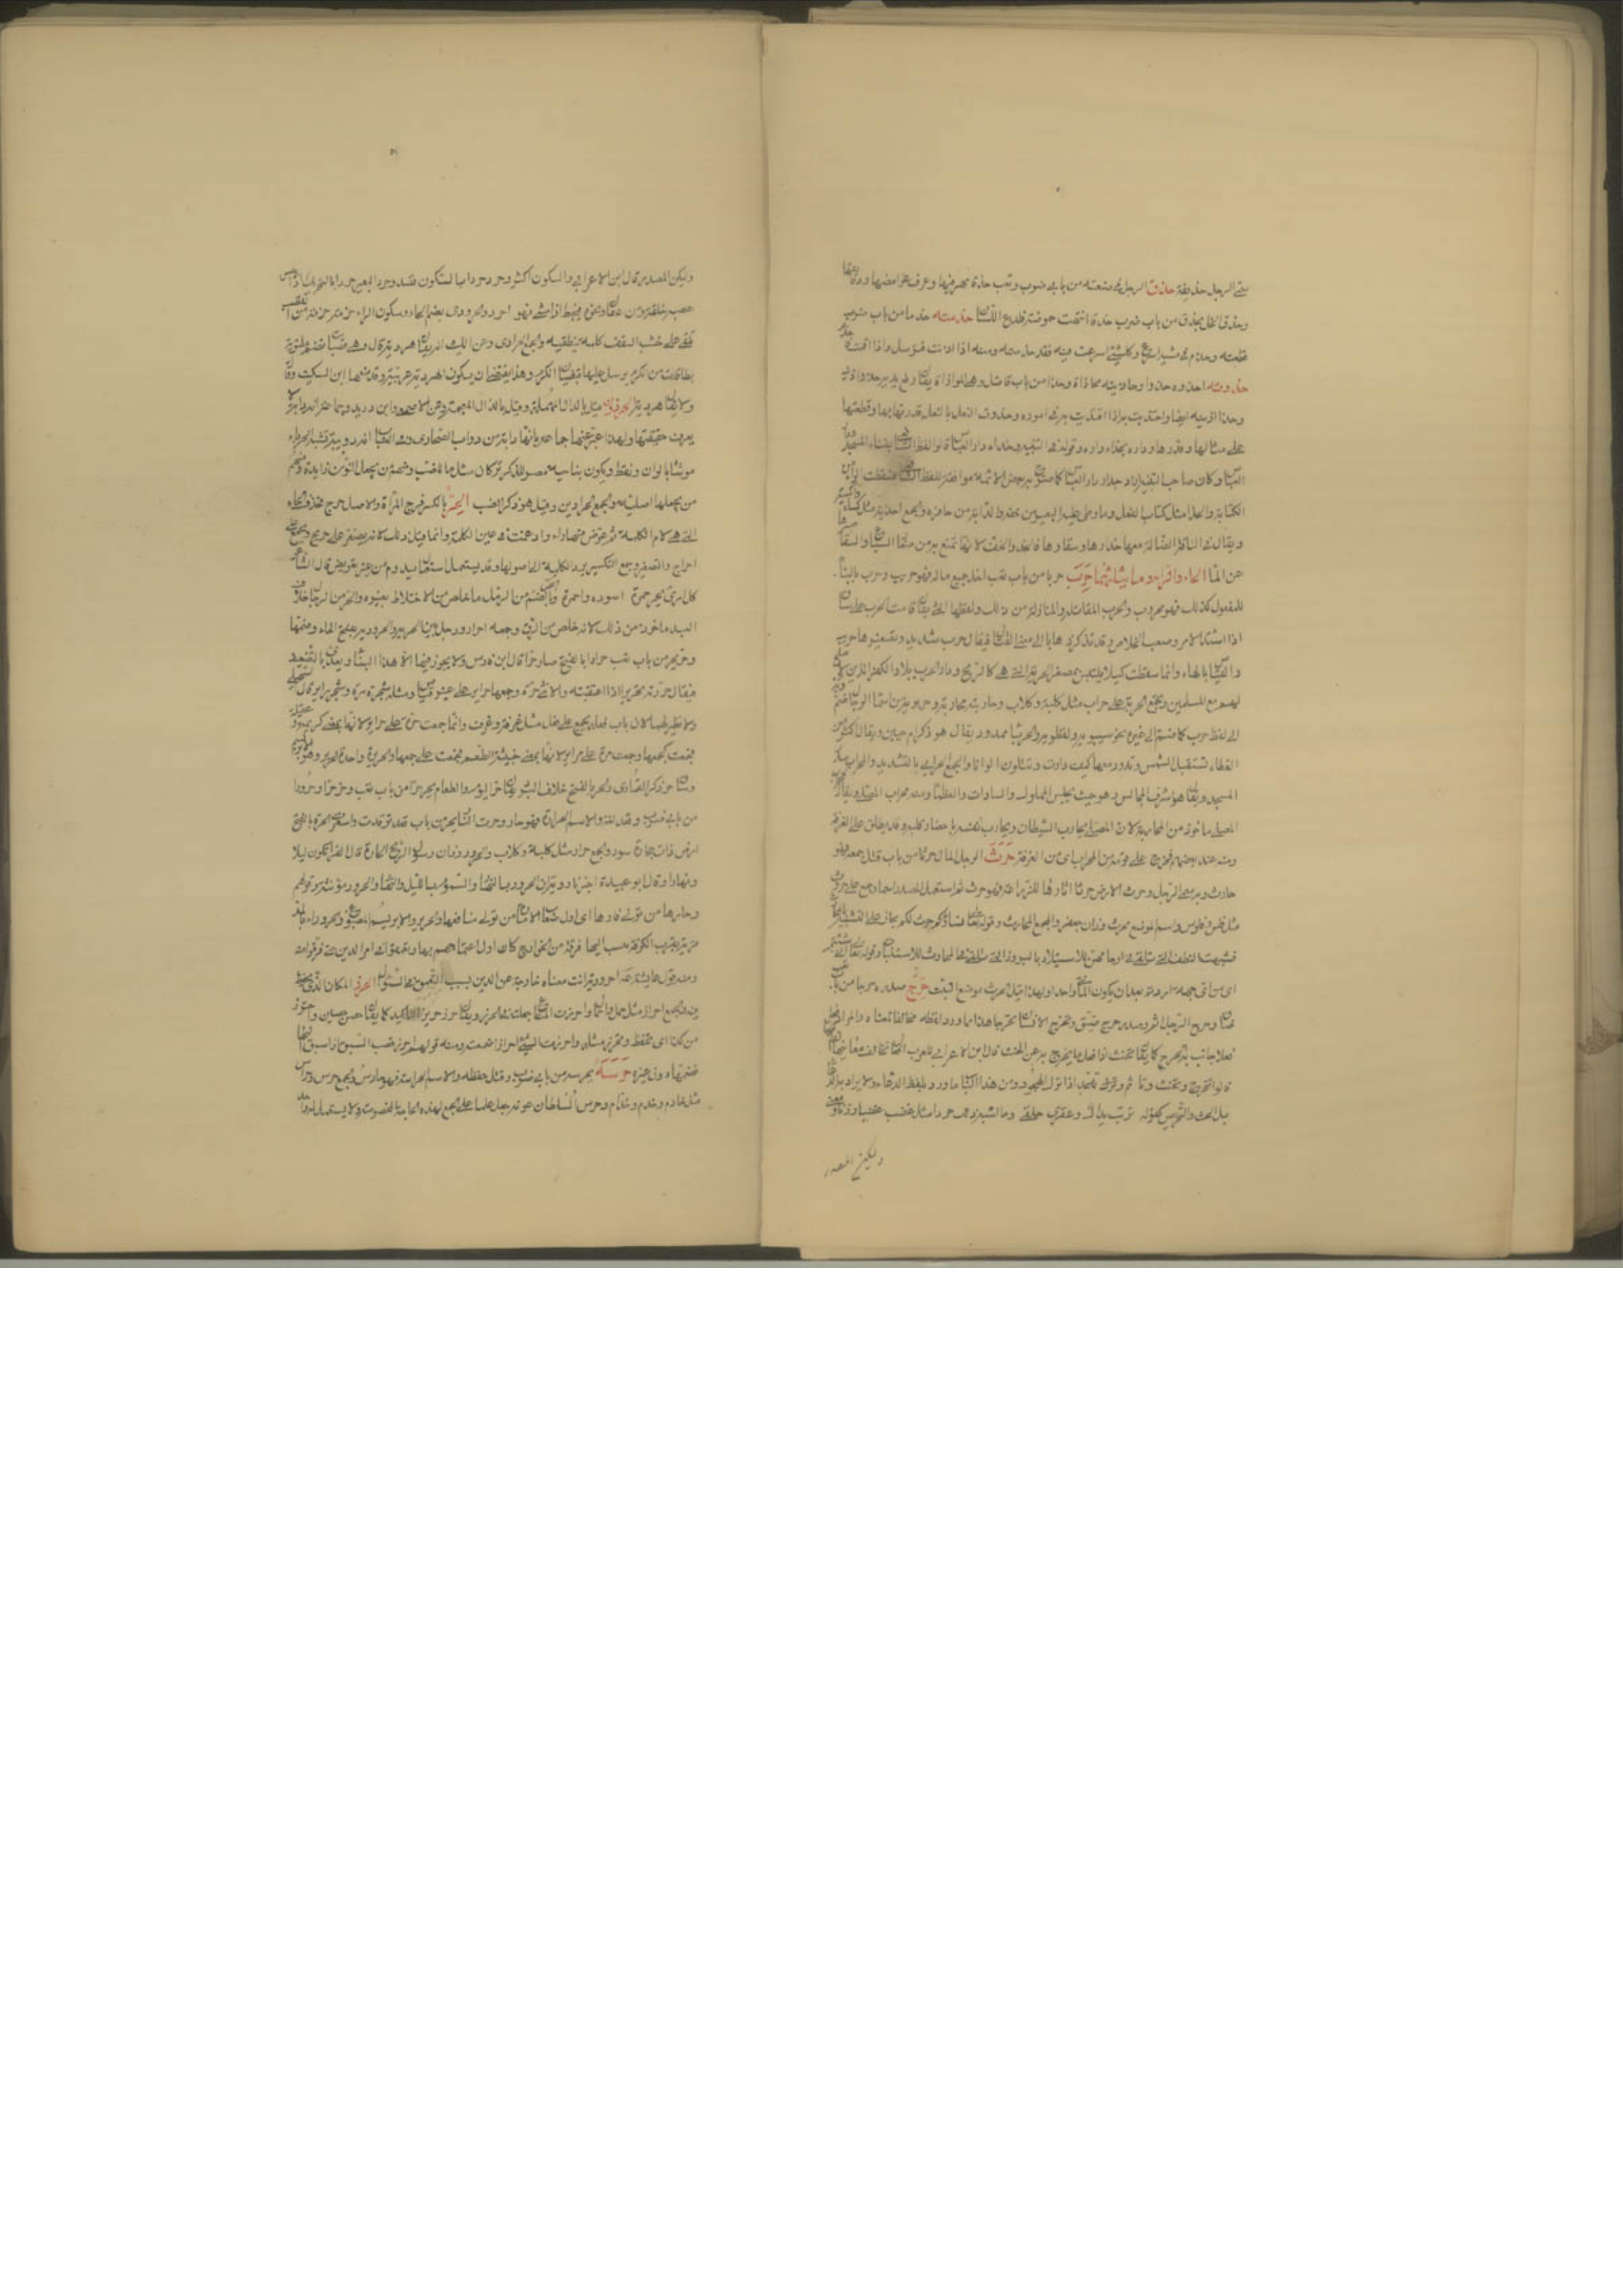 سمي الرجل حذيفة حذق الرجل في صنعته من بابي ضرب وتعب حذقا مهر فيها وعرف غوامضها ودقائقها
وحذق الخل يحذق من باب ضرب حذقا انتهت حموضته فلذع اللسان حذمته حذما من باب ضرب
قطعته وحذم في مشيه اسرع وكل شيء اسرعت فيه فقد حذمته ومنه اذا اذنت فترسل واذا اقمت فاحذم
حذوته احذوه حذوا وحاذيته محاذاة وحذاء من باب قاتل وهي الموازاة يقال رفع يديه حذو اذنيه
وحذاء اذنيه ايضا واحتذيت به اذا اقتديت به في اموره وحذوت النعل بالنعل قدرتها بها وقطعتها
على مثالها وقدرها وداره بحذاء داره
الكتابة والحذاء مثل كتاب النعل وما وطئ عليه البعير من خفه والدابة من حافره والجمع احذية مثل كساء واكسية
ويقال في الناقة الضالة معها حذاؤها وسقاؤها فالحذاء الخف لانها تمتنع به من صغار السباع والسقاء صبرها
عن الماء الحاء والراء وما يثلثهما حرب حربا من باب تعب اخذ جميع ماله فهو حريب وحرب بالبناء
للمفعول كذلك فهو محروب والحرب المقاتلة والمنازلة من ذلك ولفظها انثى يقال قامت الحرب على ساق
اذا اشتد الامر وصعب الخلاص وقد تذكر ذهابا الى معنى القتال فيقال حرب شديد وتصغيرها حريب
والقياس بالهاء وانما سقطت كيلا يلتبس بمصغر الحربة التي هي كالرمح ودار الحرب بلاد الكفر الذين لا صلح
لهم مع المسلمين وتجمع الحربة على حراب مثل كلبة وكلاب وحاربته محاربة وحربويه من اسماء الرجال ضم ويه
الى لفظ حرب كما ضم الى غيره نحو سيبويه ونفطويه والحرباء ممدود يقال هو ذكر ام حبين ويقال اكبر من
العظاء تستقبل الشمس وتدور معها كيف دارت وتتلون الوانا والجمع الحرابي بالتشديد والمحراب صدر
المجلس ويقال هو اشرف المجالس وهو حيث يجلس الملوك والسادات والعظماء ومنه محراب المصلي ويقال محراب
المصلي ماخوذ من المحاربة لان المصلي يحارب الشيطان ويحارب نفسه باحضار قلبه وقد يطلق على الغرفة
ومنه عند بعضهم فخرج على قومه من المحراب اي من الغرفة حرث الرجل المال حرثا من باب قتل جمعه فهو
حارث وبه سمي الرجل وحرث الارض حرثا اثارها للزراعة فهو حراث ثم استعمل المصدر اسما وجمع على حروث
مثل فلس وفلوس واسم الموضع محرث وزان جعفر والجمع المحارث وقوله تعالى نساؤكم حرث لكم مجاز على التشبيه بالمحارث
فشبهت النطفة التي تلقى في ارحامهن للاستيلاد بالبذور التي تلقى في المحارث للاستنبات وقوله تعالى انى شئتم
اي من اي جهة اردتم بعد ان يكون الماتى واحدا ولهذا قيل الحرث موضع النبت حرج صدره حرجا من باب تعب
ضاق وحرج الرجل اثم وصدر حرج ضيق وتحرج الانسان تحرجا هذا مما ورد لفظه مخالفا لمعناه والمراد فعل
فعلا جانب به الحرج كما يقال تحنث اذا فعل ما يخرج به عن الحنث قال ابن الاعرابي للعرب افعال تخالف معانيها الفاظها
قالوا تحرج وتحنث وتاثم وتهجد اذا ترك الهجود ومن هذا الباب ما ورد بلفظ الدعاء ولا يراد به الدعاء
بل الحث والتحريض كقوله تربت يداك وعقرى حلقى وما اشبه ذلك حرد حردا مثل غضب غضبا وزنا ومعنى
وليكن المصدر
وليكن المصدر قال ابن الاعرابي والسكون اكثر وحرد حردا بالسكون قصد وحرد البعير حردا بالتحريك اذا يبس
عصبه خلقة او من عقال ونحوه فيخبط اذا مشى فهو احرد والحردي بضم الحاء وسكون الراء حزمة من قصب
تلقى على خشب السقف كلمة نبطية والجمع الحرادي وعن الليث انه يقال هردية قال وهي قصبات تضم ملوية
بطاقات من الكرم يرسل عليها قضبان الكرم وهذا يقتضي ان يكون الهردية عربية وقد منعها ابن السكيت وقال
ولا يقال هردية الحرذون قيل بالدال المهملة وقيل بالذال المعجمة وعن الاصمعي وابن دريد وجماعة انه دابة لا
نعرف حقيقتها ولهذا عبر عنها جماعة بانها دابة من دواب الصحاري وفي العباب انه دويبة تشبه الحرباء
موشاة بالوان ونقط ويكون بناحية مصر وللذكر تزكان مثل ما للضب ومنهم من يجعل النون زايدة ومنهم
من يجعلها اصلية والجمع الحراذين وقيل هو ذكر الضب الحر بالكسر فرج المراة والاصل حرح فحذفت الحاء
التي هي لام الكلمة ثم عوض عنها راء وادغمت في عين الكلمة وانما قيل ذلك لانه يصغر على حريح ويجمع على
احراح والتصغير وجمع التكسير يرد الكلمة الى اصولها وقد يستعمل استعمال يد ودم من غير تعويض قال الشاعر
كل امرئ يحمي حره اسوده واحمره والحر بالضم من الرمل ما خلص من الاختلاط بغيره والحر من الرجال خلاف
العبد ماخوذ من ذلك لانه خلص من الرق وجمعه احرار ورجل حر بين الحرية والحرورية بفتح الحاء وضمها
وحر يحر من باب تعب حرارا بالفتح صار حرا قال ابن فارس ولا يجوز فيه الا هذا البناء ويعدى بالتضعيف
فيقال حررته تحريرا اذا اعتقته والانثى حرة وجمعها حراير على غير قياس ومثله شجرة مرة وشجر مراير قال السهيلي
ولا نظير لهما لان باب فعلة يجمع على فعل مثل غرفة وغرف وانما جمعت حرة على حراير لانها بمعنى كريمة وعقيلة
فجمعت كجمعها وجمعت مرة على مراير لانها بمعنى خبيثة الطعم فجمعت على جمعها والحريرة واحدة الحرير وهو الابريسم
وساق حر ذكر القماري والحر بالفتح خلاف البرد يقال حر اليوم والطعام يحر حرا من باب تعب وحر حرا وحرورا
من بابي ضرب وقعد لغة والاسم الحرارة فهو حار وحرت النار تحر من باب تعب توقدت واستعرت والحرة بالفتح
ارض ذات حجارة سود والجمع حرار مثل كلبة وكلاب والحرور وزان رسول الريح الحارة قال الفراء تكون ليلا
ونهارا وقال ابو عبيدة اخبرنا رؤبة ان الحرور بالنهار والسموم بالليل
وحارها من تولى قارها اي ول صعاب الامارة من تولى منافعها والحرير الابريسم المطبوخ وحروراء بالمد
قرية بقرب الكوفة ينسب اليها فرقة من الخوارج كان اول اجتماعهم بها وتعمقوا في امر الدين حتى مرقوا منه
ومنه قول عائشة احرورية انت معناه اخارجة عن الدين بسبب التعمق في السؤال الحرز المكان الذي يحفظ
فيه والجمع احراز مثل حمل واحمال واحرزت المتاع جعلته في الحرز ويقال حرز حريز للتاكيد كما يقال حصن حصين واحترز
من كذا اي تحفظ وتحرز مثله واحرزت الشيء احرازا ضممته ومنه قولهم احرز قصب السبق اذا سبق اليها
فضمها دون غيره حرسه يحرسه من بابي ضرب وقتل حفظه والاسم الحراسة فهو حارس والجمع حرس وحراس
مثل خادم وخدم وخدام وحرس السلطان اعوانه جعل علما على الجمع لهذه الحالة المخصوصة ولا يستعمل له واحد